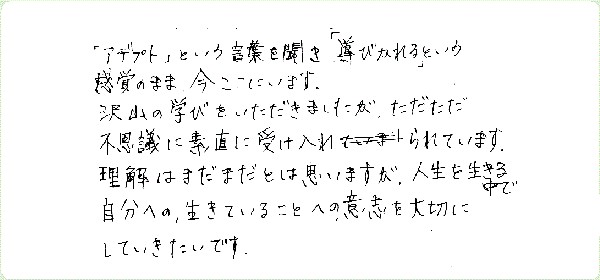 「アデプト」という言葉を聞き「導びかれる」という
感覚のまま、今ここにいます。
沢山の学びをいただきましたが、ただただ
不思議に素直に受け入れられています。
理解はまだまだとは思いますが、人生を生きる中で
自分への、生きていることへの、意志を大切に
していきたいです。